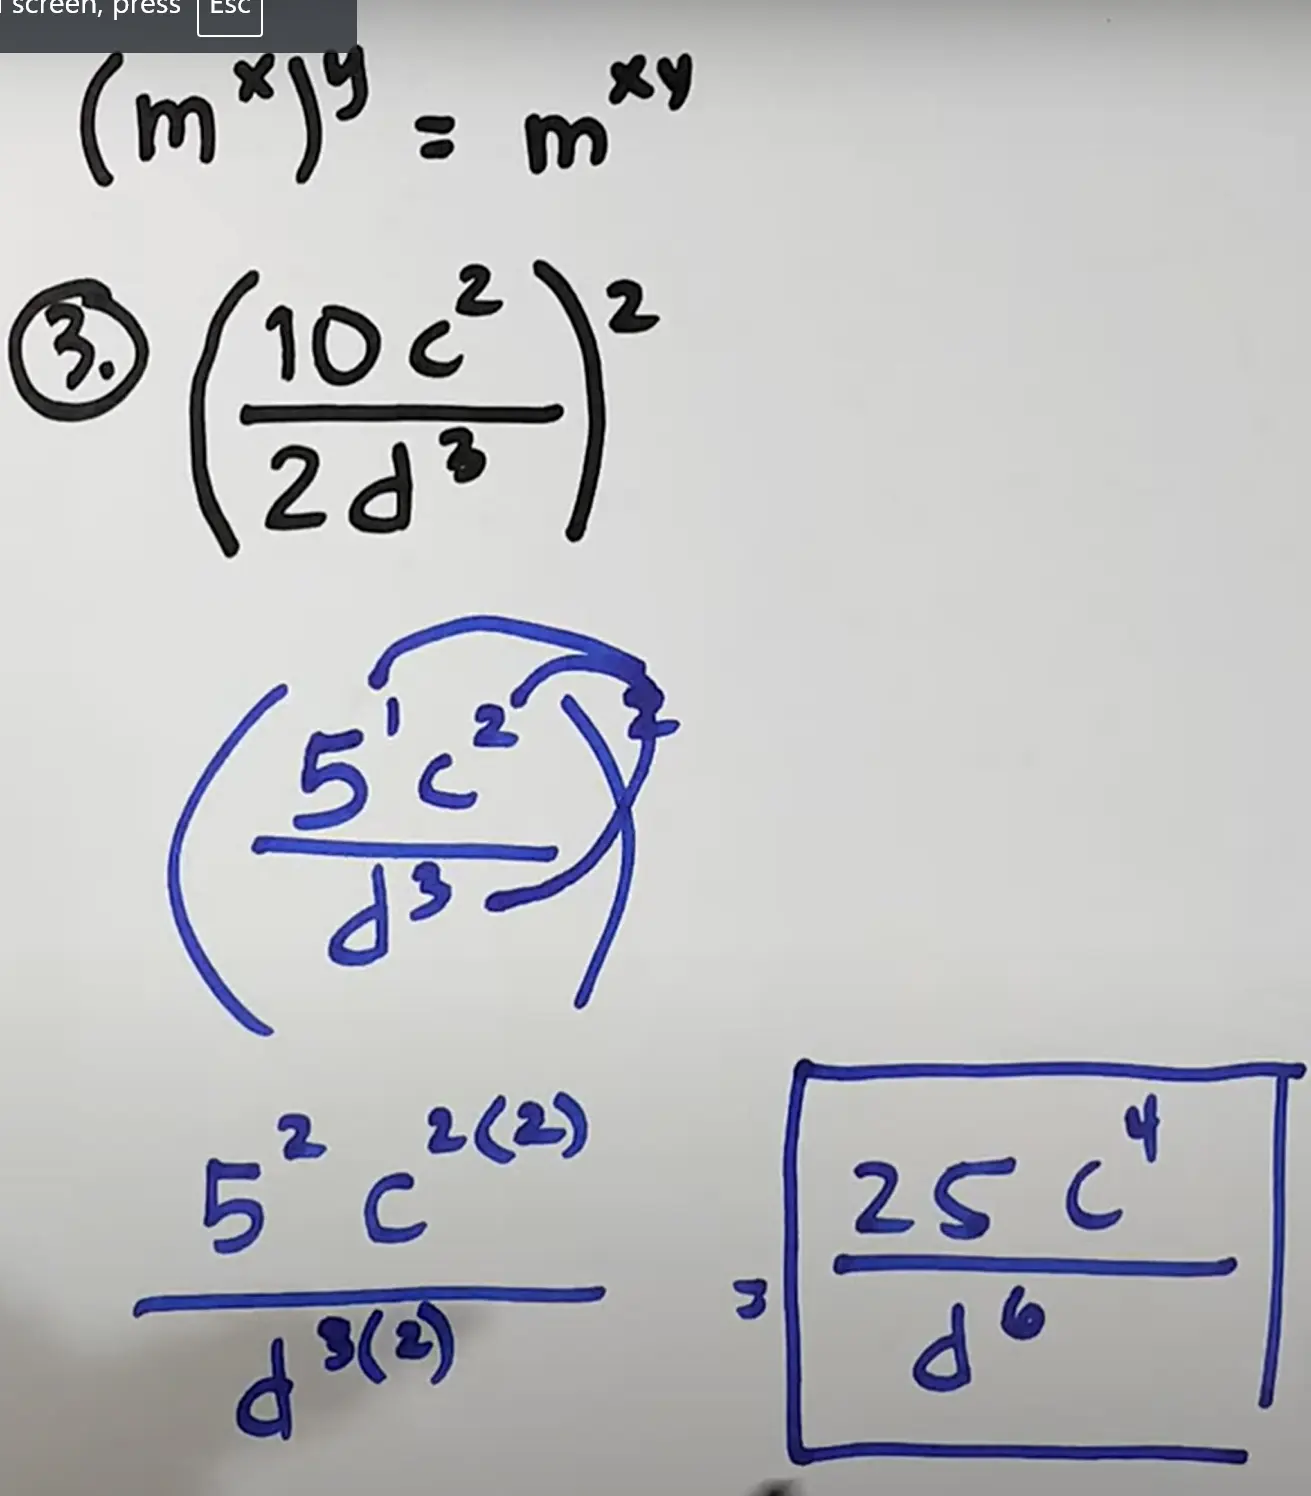 screen, press Esc
(m^x)^y = m^xy
3. (10c^2 / 2d^3)^2
(5^1 c^2 / d^3)^2
5^2 c^2(2) / d^3(2) = 25c^4 / d^6